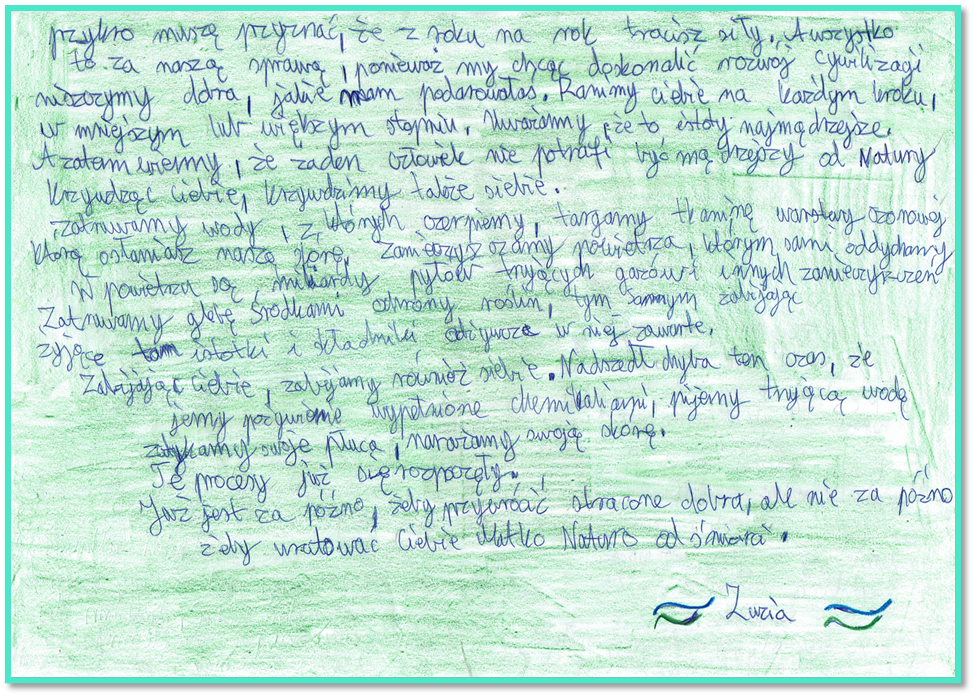 przykro muszę przyznać, że z roku na rok tracisz siły. A wszystko
to za naszą sprawą, ponieważ my chcąc doskonalić rozwój cywilizacji
niszczymy dobra, jakie nam podarowałaś. Ranimy ciebie na każdym kroku,
w mniejszym lub większym stopniu. Uważamy, że to istoty najmądrzejsze.
A zatem wiemy, że żaden człowiek nie potrafi być mądrzejszy od Natury
Krzywdząc Ciebie, krzywdzimy także siebie.
Zatruwamy wody, z których czerpiemy, targamy tkaninę warstwy ozonowej
którą osłaniasz naszą skórę, zanieczyszczamy powietrza, którym sami oddychamy
W powietrzu są miliardy pyłów trujących gazów i innych zanieczyszczeń
Zatruwamy glebę środkami ochrony roślin, tym samym zabijając
żyjące tam istotki i składniki odżywcze w niej zawarte.
Zabijając ciebie, zabijamy również siebie. Nadszedł chyba ten czas, że
jemy pożywienie wypełnione chemikaliami, pijemy trującą wodę
zatykamy swoje płuca, narażamy swoją skórę.
Te procesy już się rozpoczęły.
Już jest za późno, żeby przywrócić stracone dobra, ale nie za późno
żeby uratować Ciebie Matko Naturo od śmierci.
Zuzia